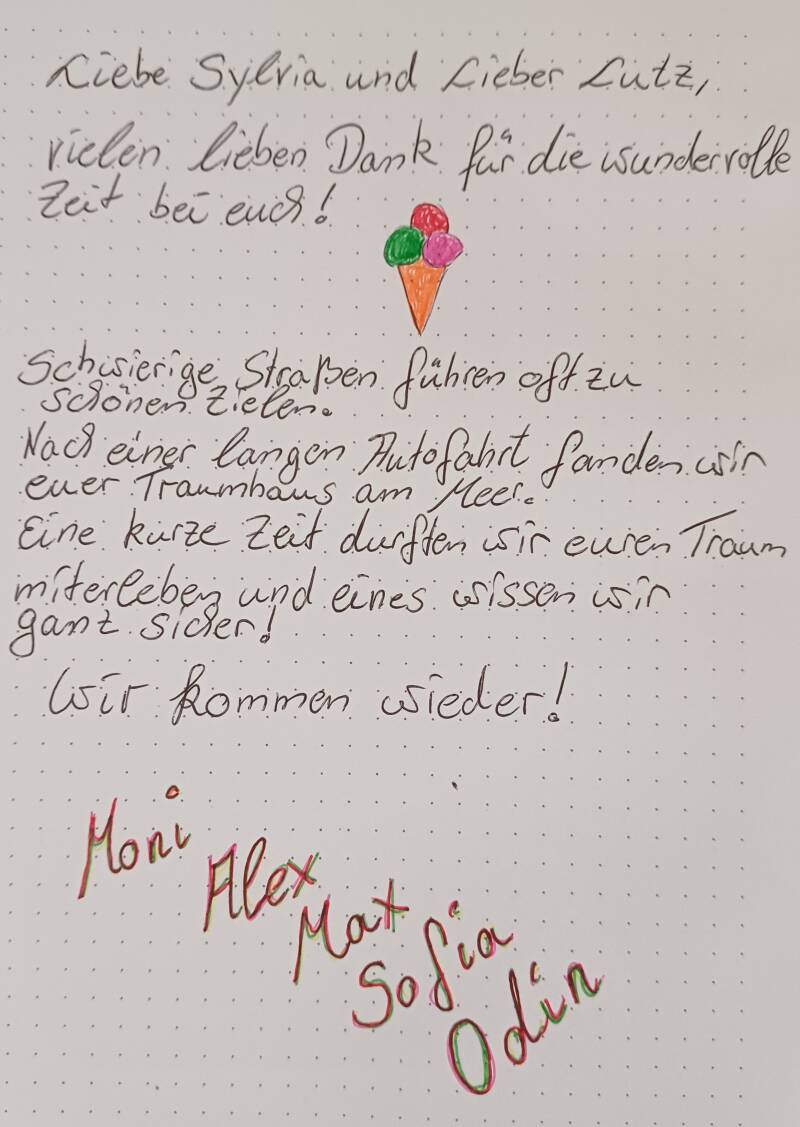 Liebe Sylvia und Lieber Lutz,
vielen lieben Dank für die wundervolle
Zeit bei euch!
Schwierige Straßen führen oft zu
schönen Zielen.
Nach einer langen Autofahrt fanden wir
euer Traumhaus am Meer.
Eine kurze Zeit durften wir euren Traum
miterleben und eines wissen wir
ganz sicher!
Wir kommen wieder!
Moni
Alex
Max
Sofia
Odin